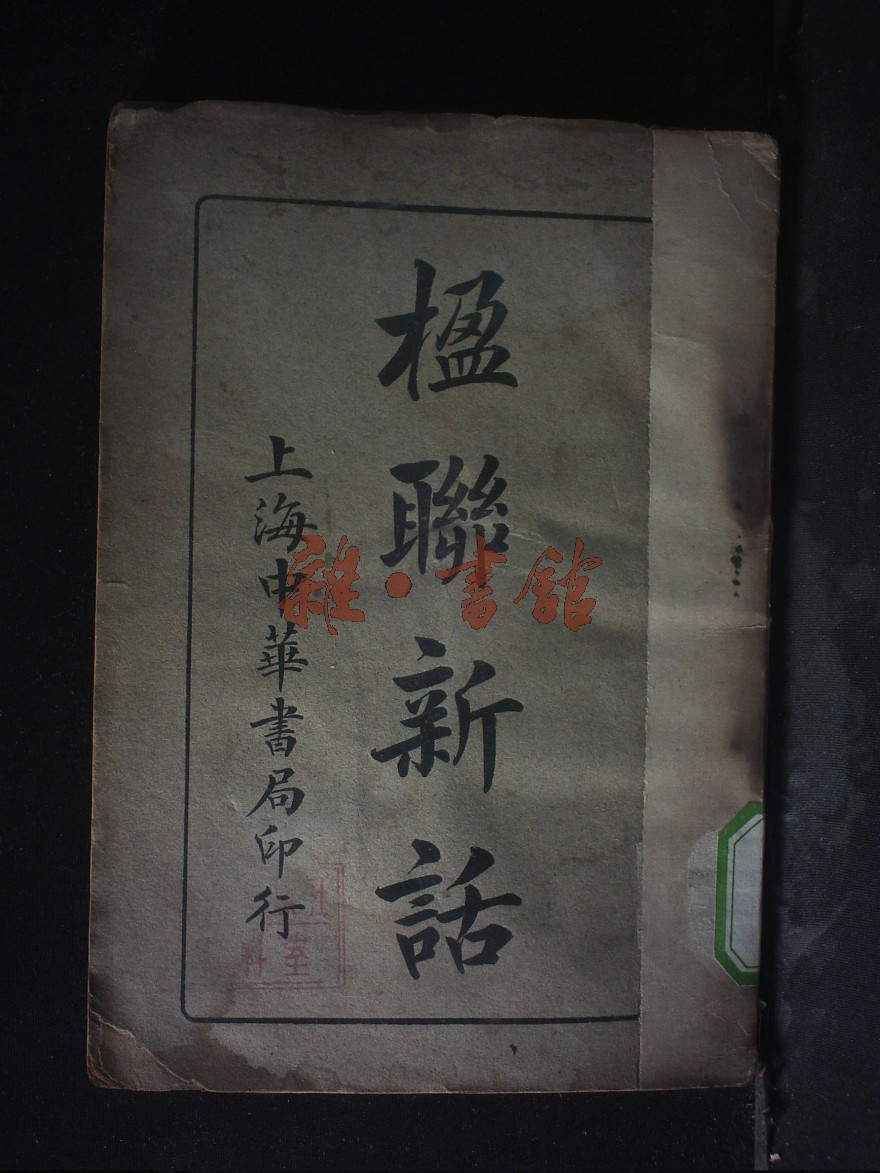 楹聯新話
上海中華書局印行
雜·書館